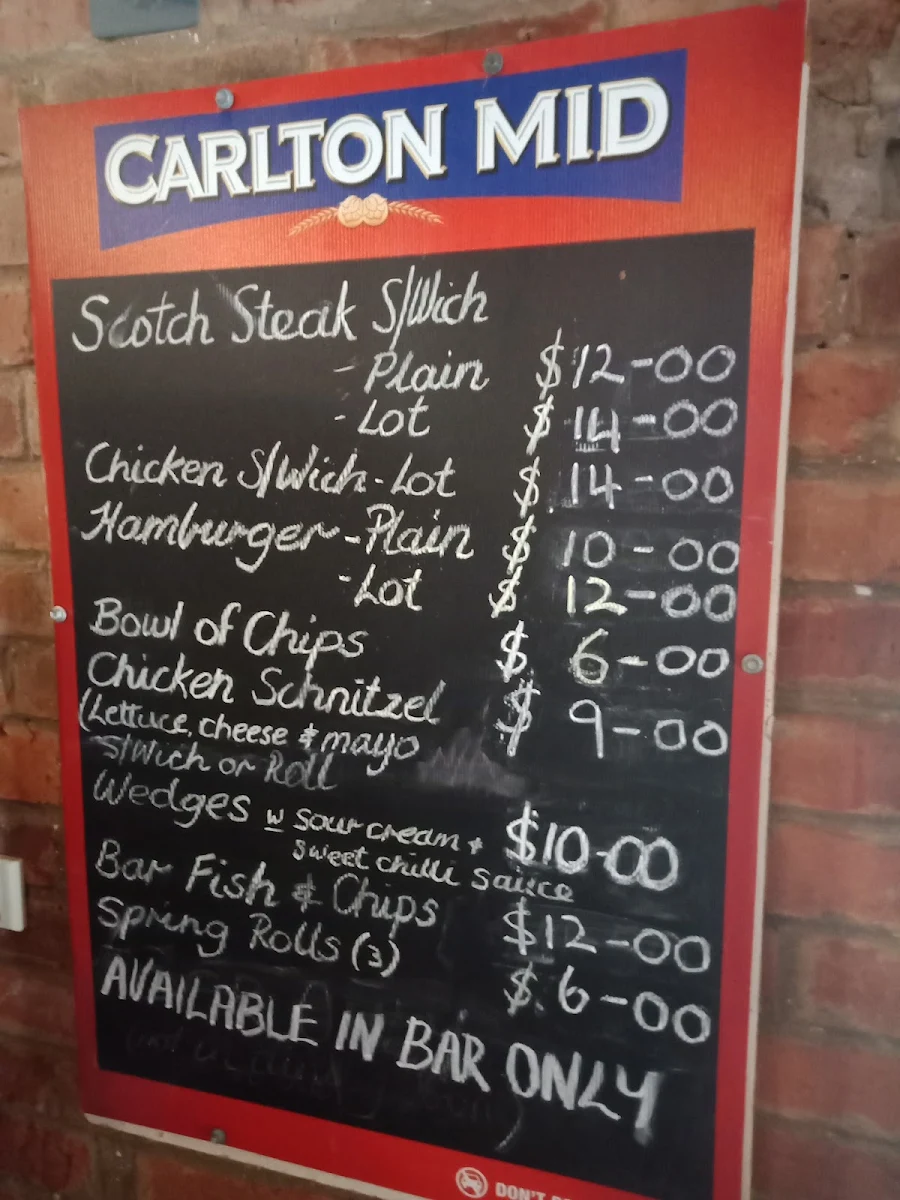 CARLTON MID
Scotch Steak S/Wich
- Plain $12-00
- Lot $14-00
Chicken S/Wich-Lot $14-00
Hamburger-Plain $10-00
-Lot $12-00
Bowl of Chips $6-00
Chicken Schnitzel $9-00
(Lettuce, cheese & mayo
S/Wich or Roll
Wedges w sour cream + $10-00
sweet chilli sauce
Bar Fish & Chips $12-00
Spring Rolls (3) $6-00
AVAILABLE IN BAR ONLY
DON'T